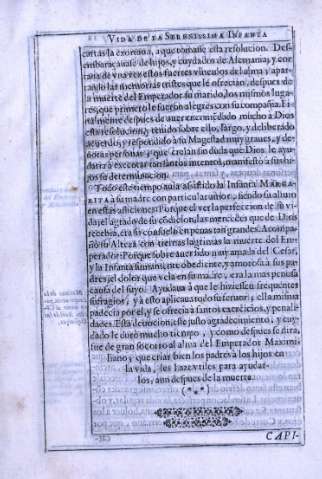 VIDA DE LA SERENISSIMA INFANTA
cartas la exortaua, a que tomasse esta resolucion. Des-
embaraçauase de hijos, y cuydados de Alemania, y cor
taua de vna vez estos fuertes vinculos del alma, y apar-
tando las memorias tristes que le ofrecian, despues de
la muerte del Emperador su marido, los mismos luga-
res, que primero le fueron alegres con su compañia. Fi
nalmente despues de auer encomẽdado mucho a Dios
esta resolucion, y tenido sobre ello, largo, y deliberado
acuerdo, y respondido a su Magestad muy graues, y de-
uotas personas y que creian sin duda que Dios le ayu-
daria a executar tan santos intentos, manifestò a sus hi-
jos su determinacion.
Todo este tiempo auia assistido la Infanta MARGA-
RITA a su madre con particular amor, siendo su aliuio
en estas aflicciones. Porque el ver la perfeccion de su vi-
da, el agrado de su cõdicion, las mercedes que de Dios
recebia, era su consuelo en penas tan grandes. Acompa-
ñò su Alteza con tiernas lagrimas la muerte del Empe-
rador: Porque sobre auer sido muy amada del Cesar,
y la Infanta sumamente obediente, y amorosa a sus pa-
dres, el dolor que veia en su madre, era la mas penosa
causa del suyo. Ayudaua a que le hiziessen frequentes
sufragios, y a esto aplicaua todo su feruor, ella misma
padecia por el, y se ofrecia a santos exercicios, y penali-
dades. Esta deuocion, este justo agradecimiento, y cuy-
dado le durò mucho tiempo, y como despues se dira,
fue de gran socorro al alma del Emperador Maximi-
liano, que criar bien los padres a los hijos en
la vida, les haze vtiles para ayudar-
los, aun despues de la muerte.
(***)
CAPI-